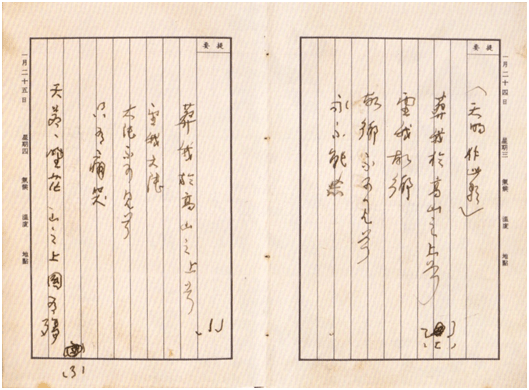 提要
一月二十四日 星期三 氣候 溫度 地點
（天明作此歌）
葬我於高山之上兮
望我故鄉
故鄉不可見兮
永不能忘
提要
葬我於高山之上兮
望我大陸
大陸不可見兮
只有痛哭
天蒼、野茫、山之上國有殤
一月二十五日 星期四 氣候 溫度 地點